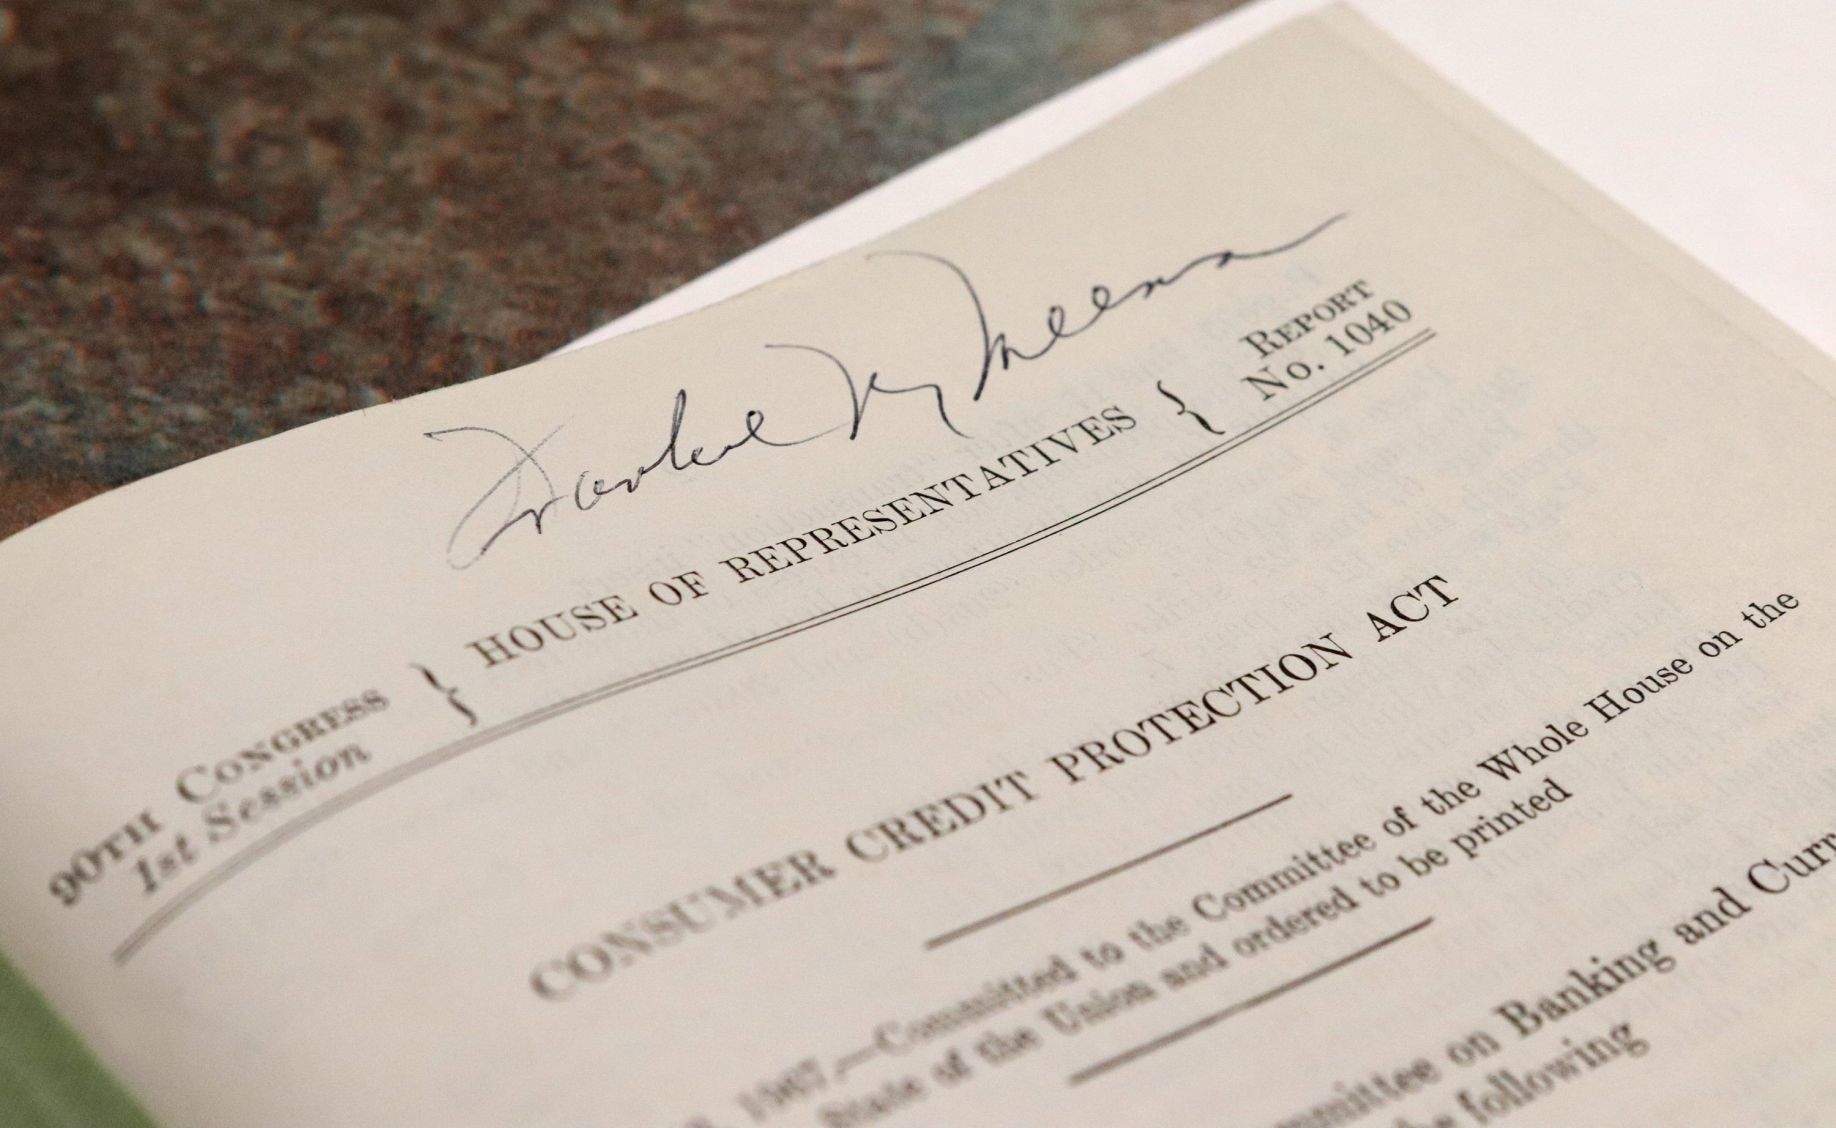 90TH CONGRESS
1st Session
HOUSE OF REPRESENTATIVES
REPORT
No. 1040
CONSUMER CREDIT PROTECTION ACT
1967.—Committed to the Committee of the Whole House on the
State of the Union and ordered to be printed
on Banking and
following